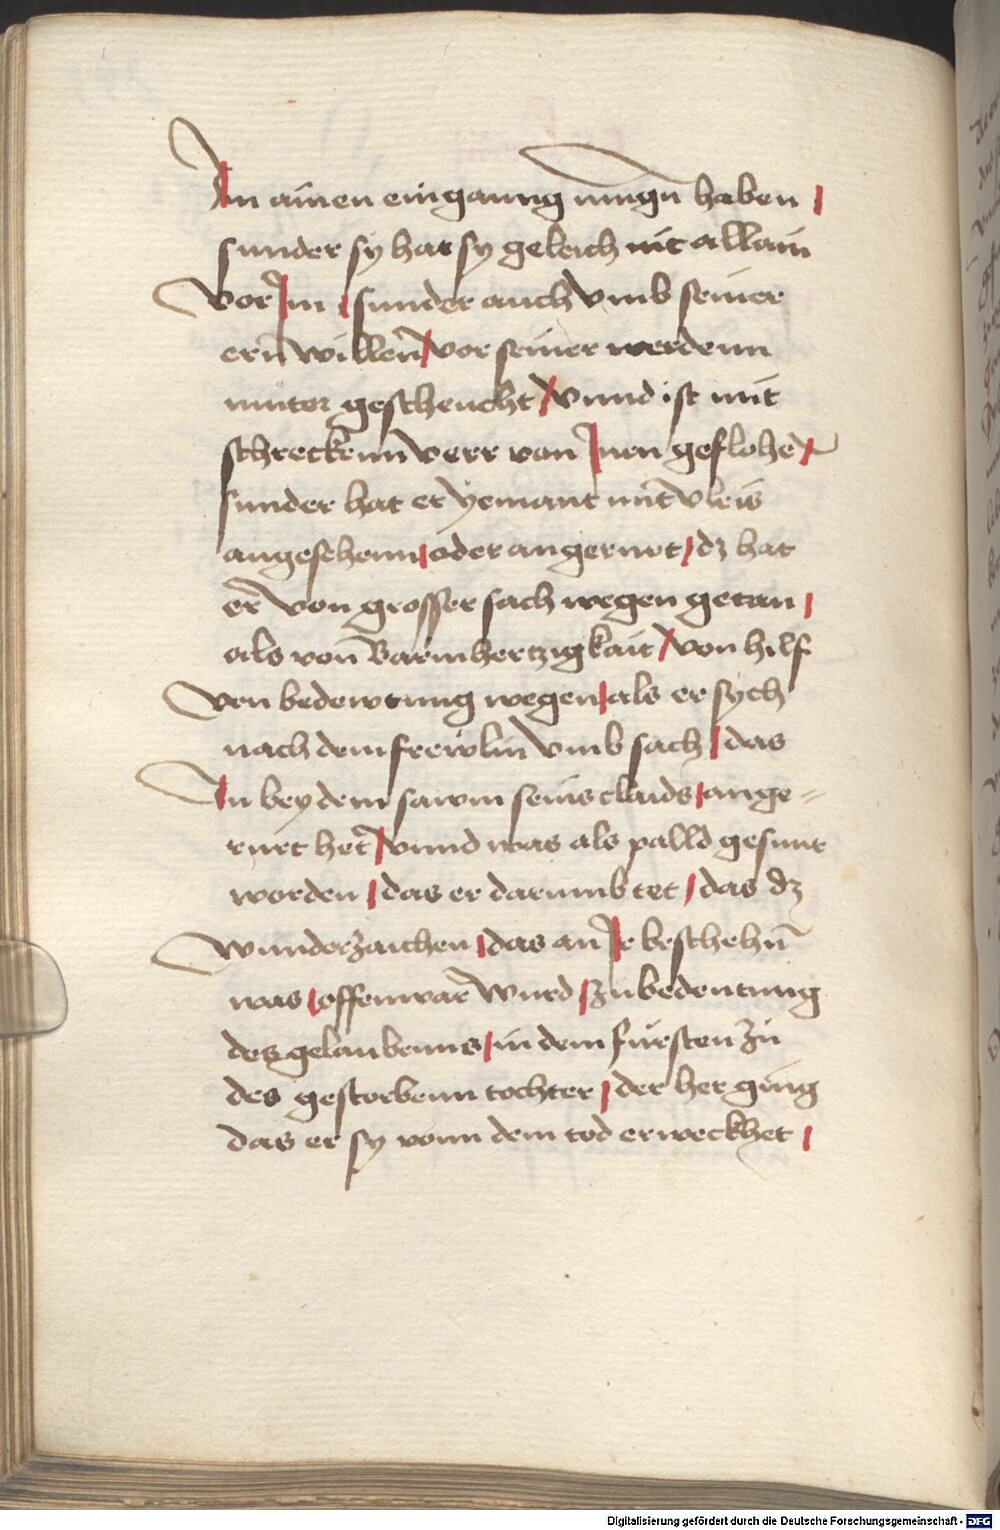 Im ainen einganng mu̅gn̅ haben /
sunder sy hat sy geleich nit allain
vor Im / sunder auch vmb seiner
ern̅ willen̅ / vor seiner werdenn
muter gescheucht / vnnd ist mit
schreckenn verr von Inen geflohen /
sunder hat er yemant mit vleis
angesehenn / oder angerurt / dz hat
er von grosser sach wegen getan /
als von Barmhertzigkait / von hilf
von bedewtung wegen / als er sych
nach dem frewlin vmb sach / das
In bey dem sawm seins claids / ange-
rurt het / vnnd was als palld gesunt
worden / das er darumb tet / das dz
wunderzaichen / das an Ir beschehn̅
was / offennwar wurd / zu bedeutung
des gelaubenns / in dem fürsten zu
des gestorbenn tochter / der her ging
das er sy vonn dem tod erweckhet /
Digitalisierung gefördert durch die Deutsche Forschungsgemeinschaft - DFG